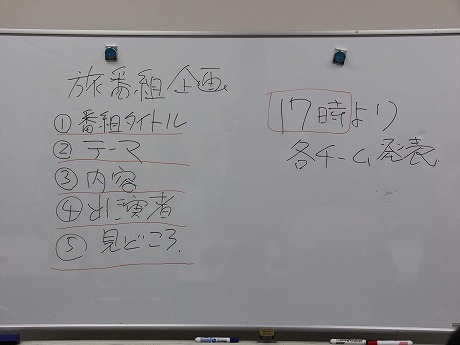 旅番組企画
①番組タイトル
②テーマ
③内容
④出演者
⑤見どころ
17時より
各チーム発表